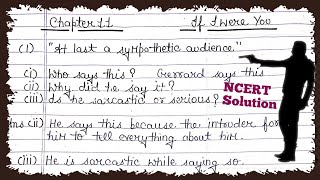 Chapter 11 If I were You
(1) "At last a sympathetic audience."
(i) Who says this? Gerrard says this
(ii) Why did he say it?
(iii) Is he sarcastic or serious?
NCERT
Solution
Ans (ii) He says this because the intruder for
him to tell everything about him.
(iii) He is sarcastic while saying so.